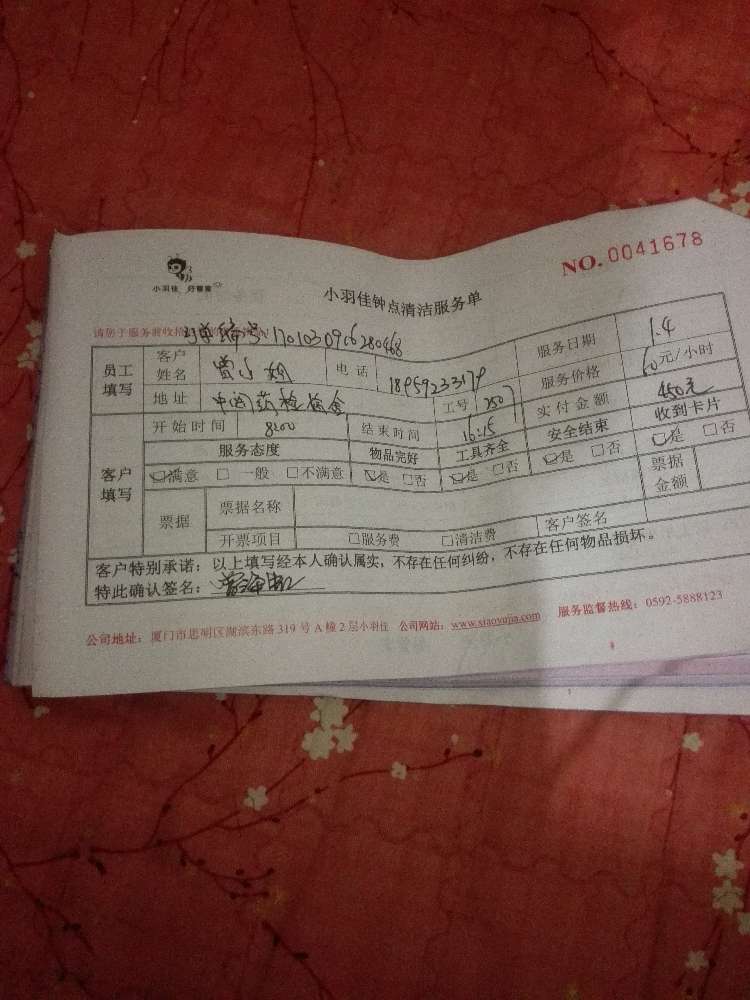 小羽佳 好管家
NO. 0041678
小羽佳钟点清洁服务单
订单编号:170103096280468
员工填写 客户姓名 曾小姐 电话 18959233179 服务日期 1.4
地址 工号 250 服务价格 60元/小时
客户填写 开始时间 8:00 结束时间 16:15 实付金额 450元
服务态度 物品完好 工具齐全 安全结束 收到卡片
☑满意 □一般 □不满意 ☑是 □否 ☑是 □否 ☑是 □否 ☑是 □否
票据 票据名称 票据金额
开票项目 □服务费 □清洁费 客户签名
客户特别承诺:以上填写经本人确认属实,不存在任何纠纷,不存在任何物品损坏。
特此确认签名:
公司地址:厦门市思明区湖滨东路319号A幢2层小羽佳 公司网站:www.xiaoyujia.com 服务监督热线:0592-5888123